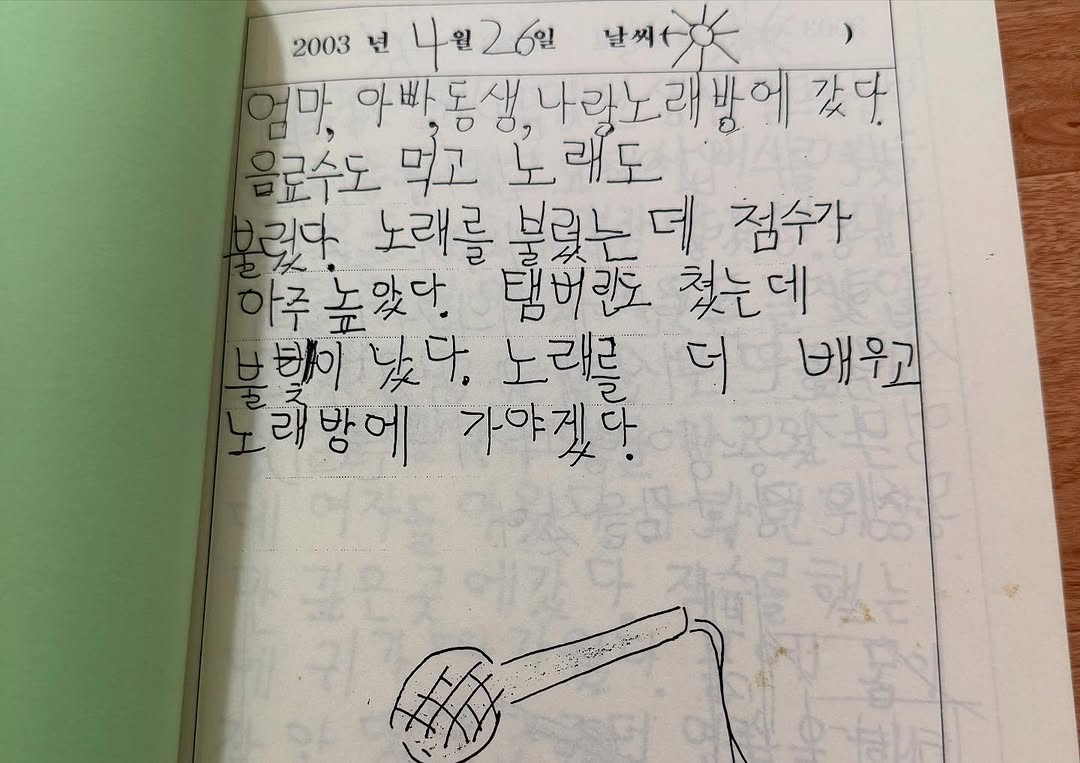 2003 년 4월 26일 날씨( )
엄마, 아빠, 동생, 나랑 노래방에 갔다.
음료수도 먹고 노래도
불렀다. 노래를 불렀는데 점수가
아주 높았다. 탬버린도 쳤는데
불빛이 났다. 노래를 더 배우고
노래방에 가야겠다.